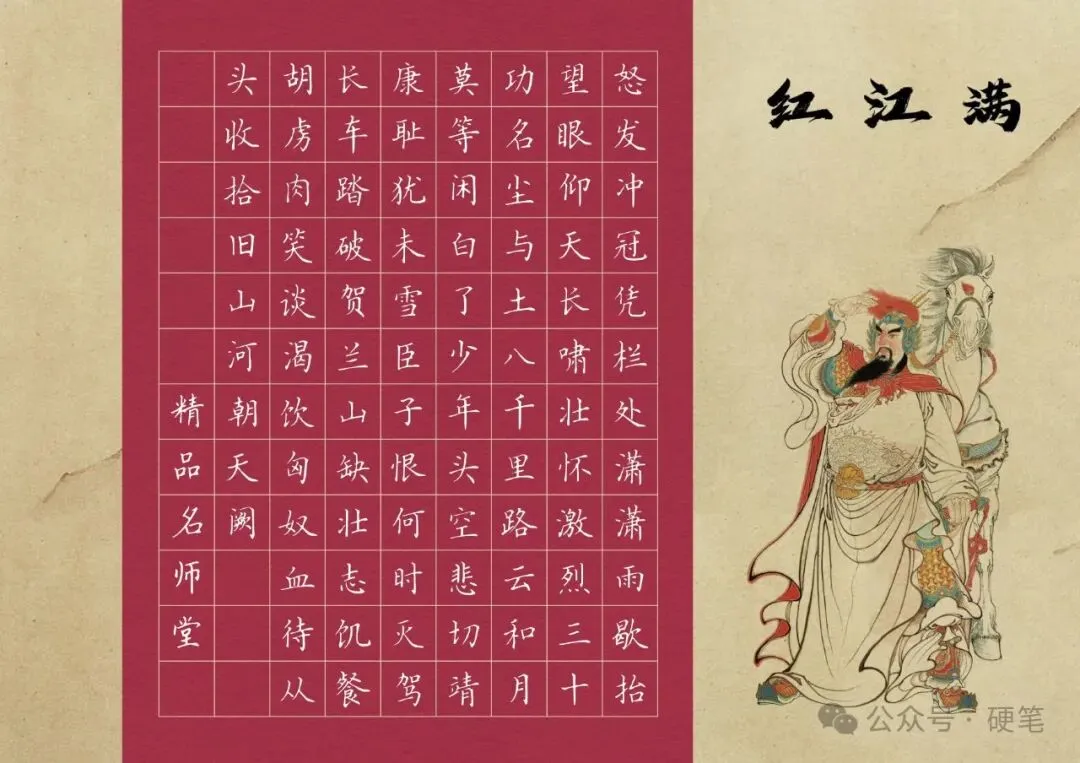 满江红
怒发冲冠凭栏处潇潇雨歇抬
望眼仰天长啸壮怀激烈三十
功名尘与土八千里路云和月
莫等闲白了少年头空悲切靖
康耻犹未雪臣子恨何时灭驾
长车踏破贺兰山缺壮志饥餐
胡虏肉笑谈渴饮匈奴血待从
头收拾旧山河朝天阙
精品名师堂
公众号·硬笔